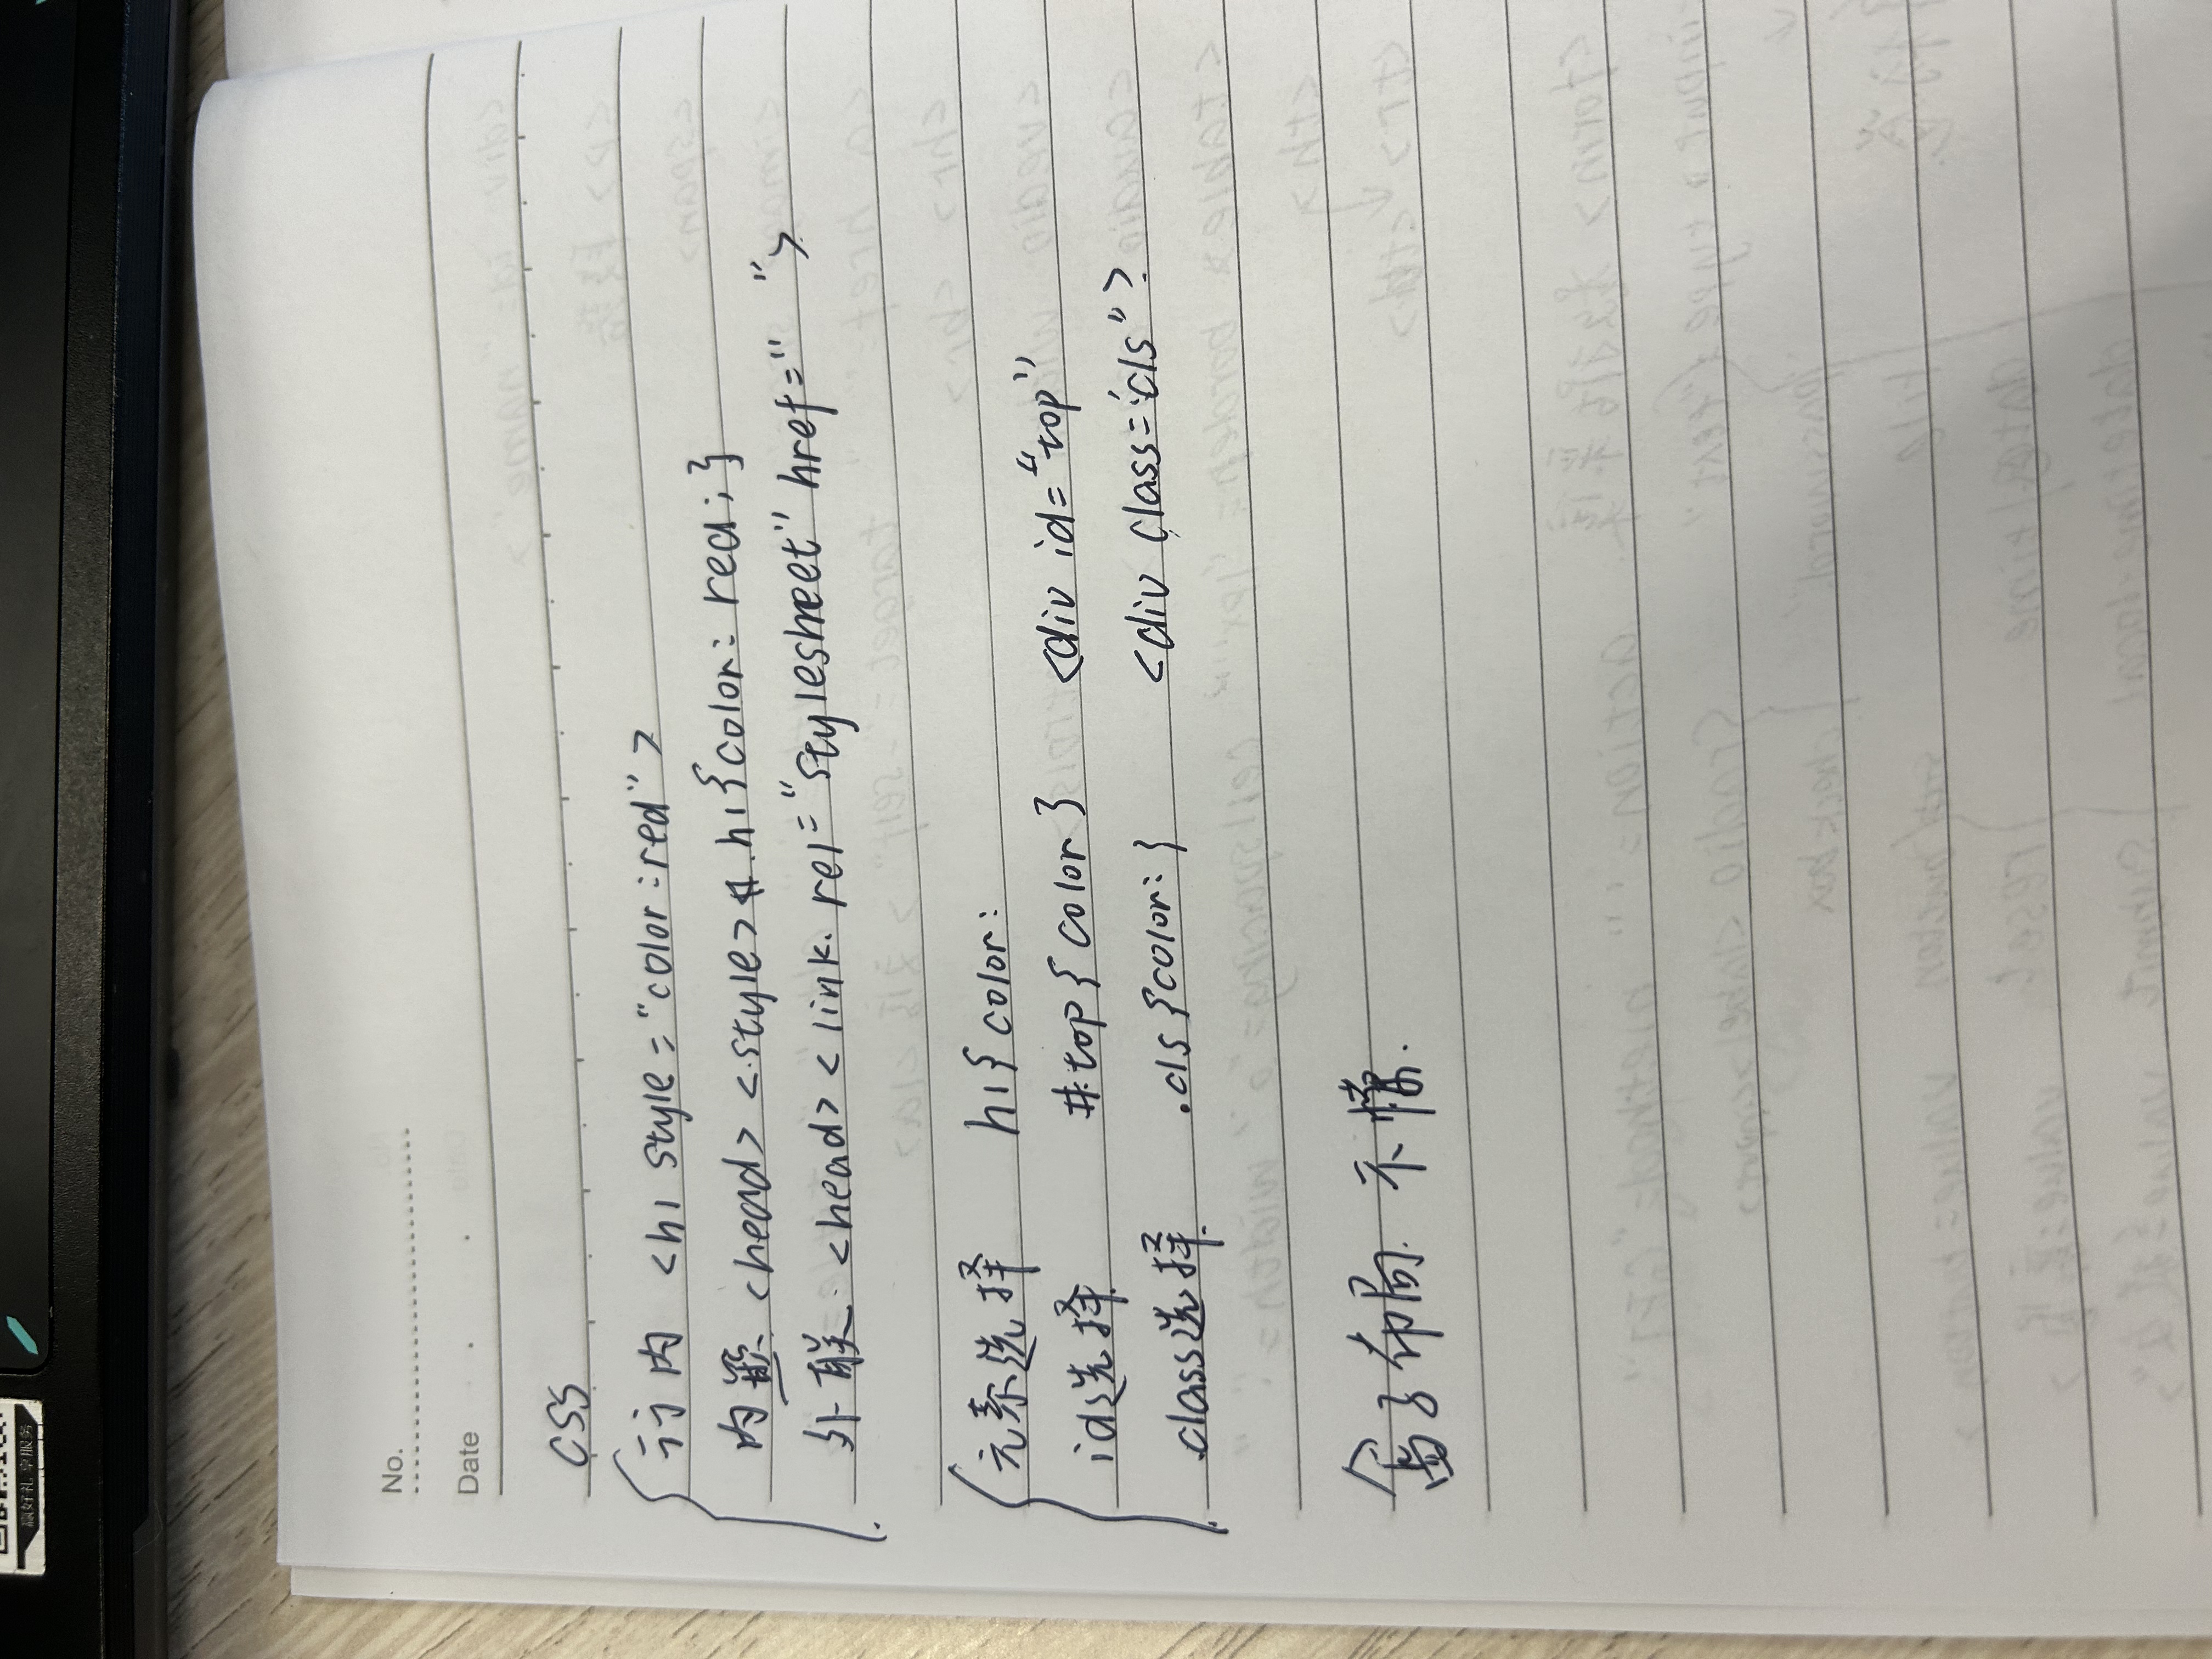 赢好礼 享服务
No.
Date
CSS
行内 <h1 style="color:red">
内嵌 <head> <style> h1{color: red;}
外联 <head> <link. rel="stylesheet" href=" ">
元素选择 h1{color:
id选择 #top{color} <div id="top"
class选择 .cls{color:} <div class="cls">
盒子布局. 不懂.